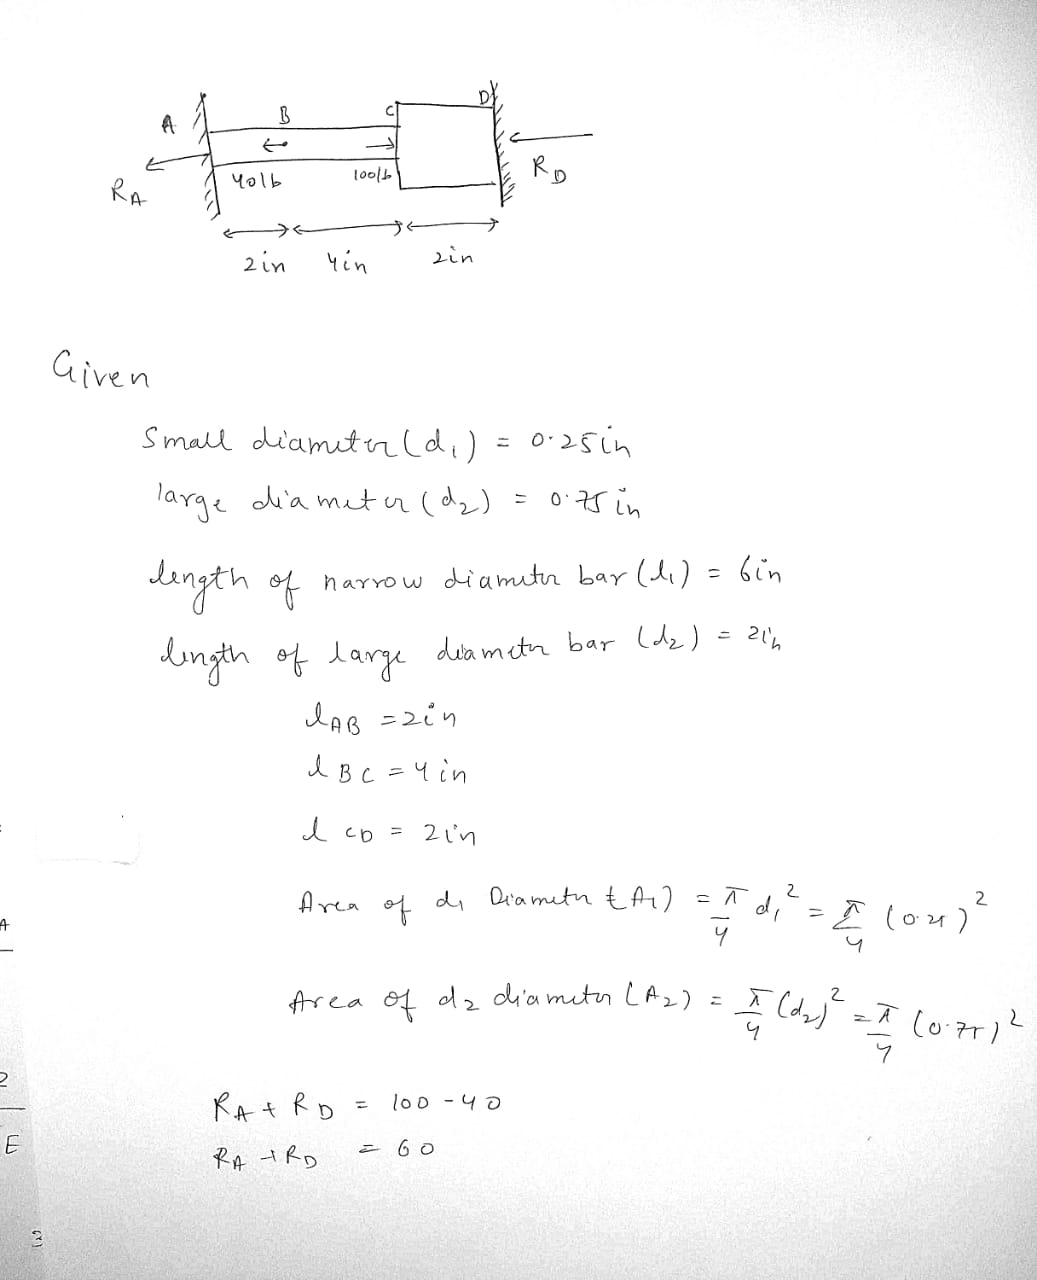 A B C D
R_A 40lb 100lb R_D
2in 4in 2in
Given
Small diameter (d₁) = 0.25in
large diameter (d₂) = 0.75 in
length of narrow diameter bar (l₁) = 6in
length of large diameter bar (d₂) = 2in
l_AB = 2in
l_BC = 4in
l_CD = 2in
Area of d₁ Diameter (A₁) = π/4 d₁² = π/4 (0.25)²
Area of d₂ diameter (A₂) = π/4 (d₂)² = π/4 (0.75)²
R_A + R_D = 100 - 40
R_A + R_D = 60